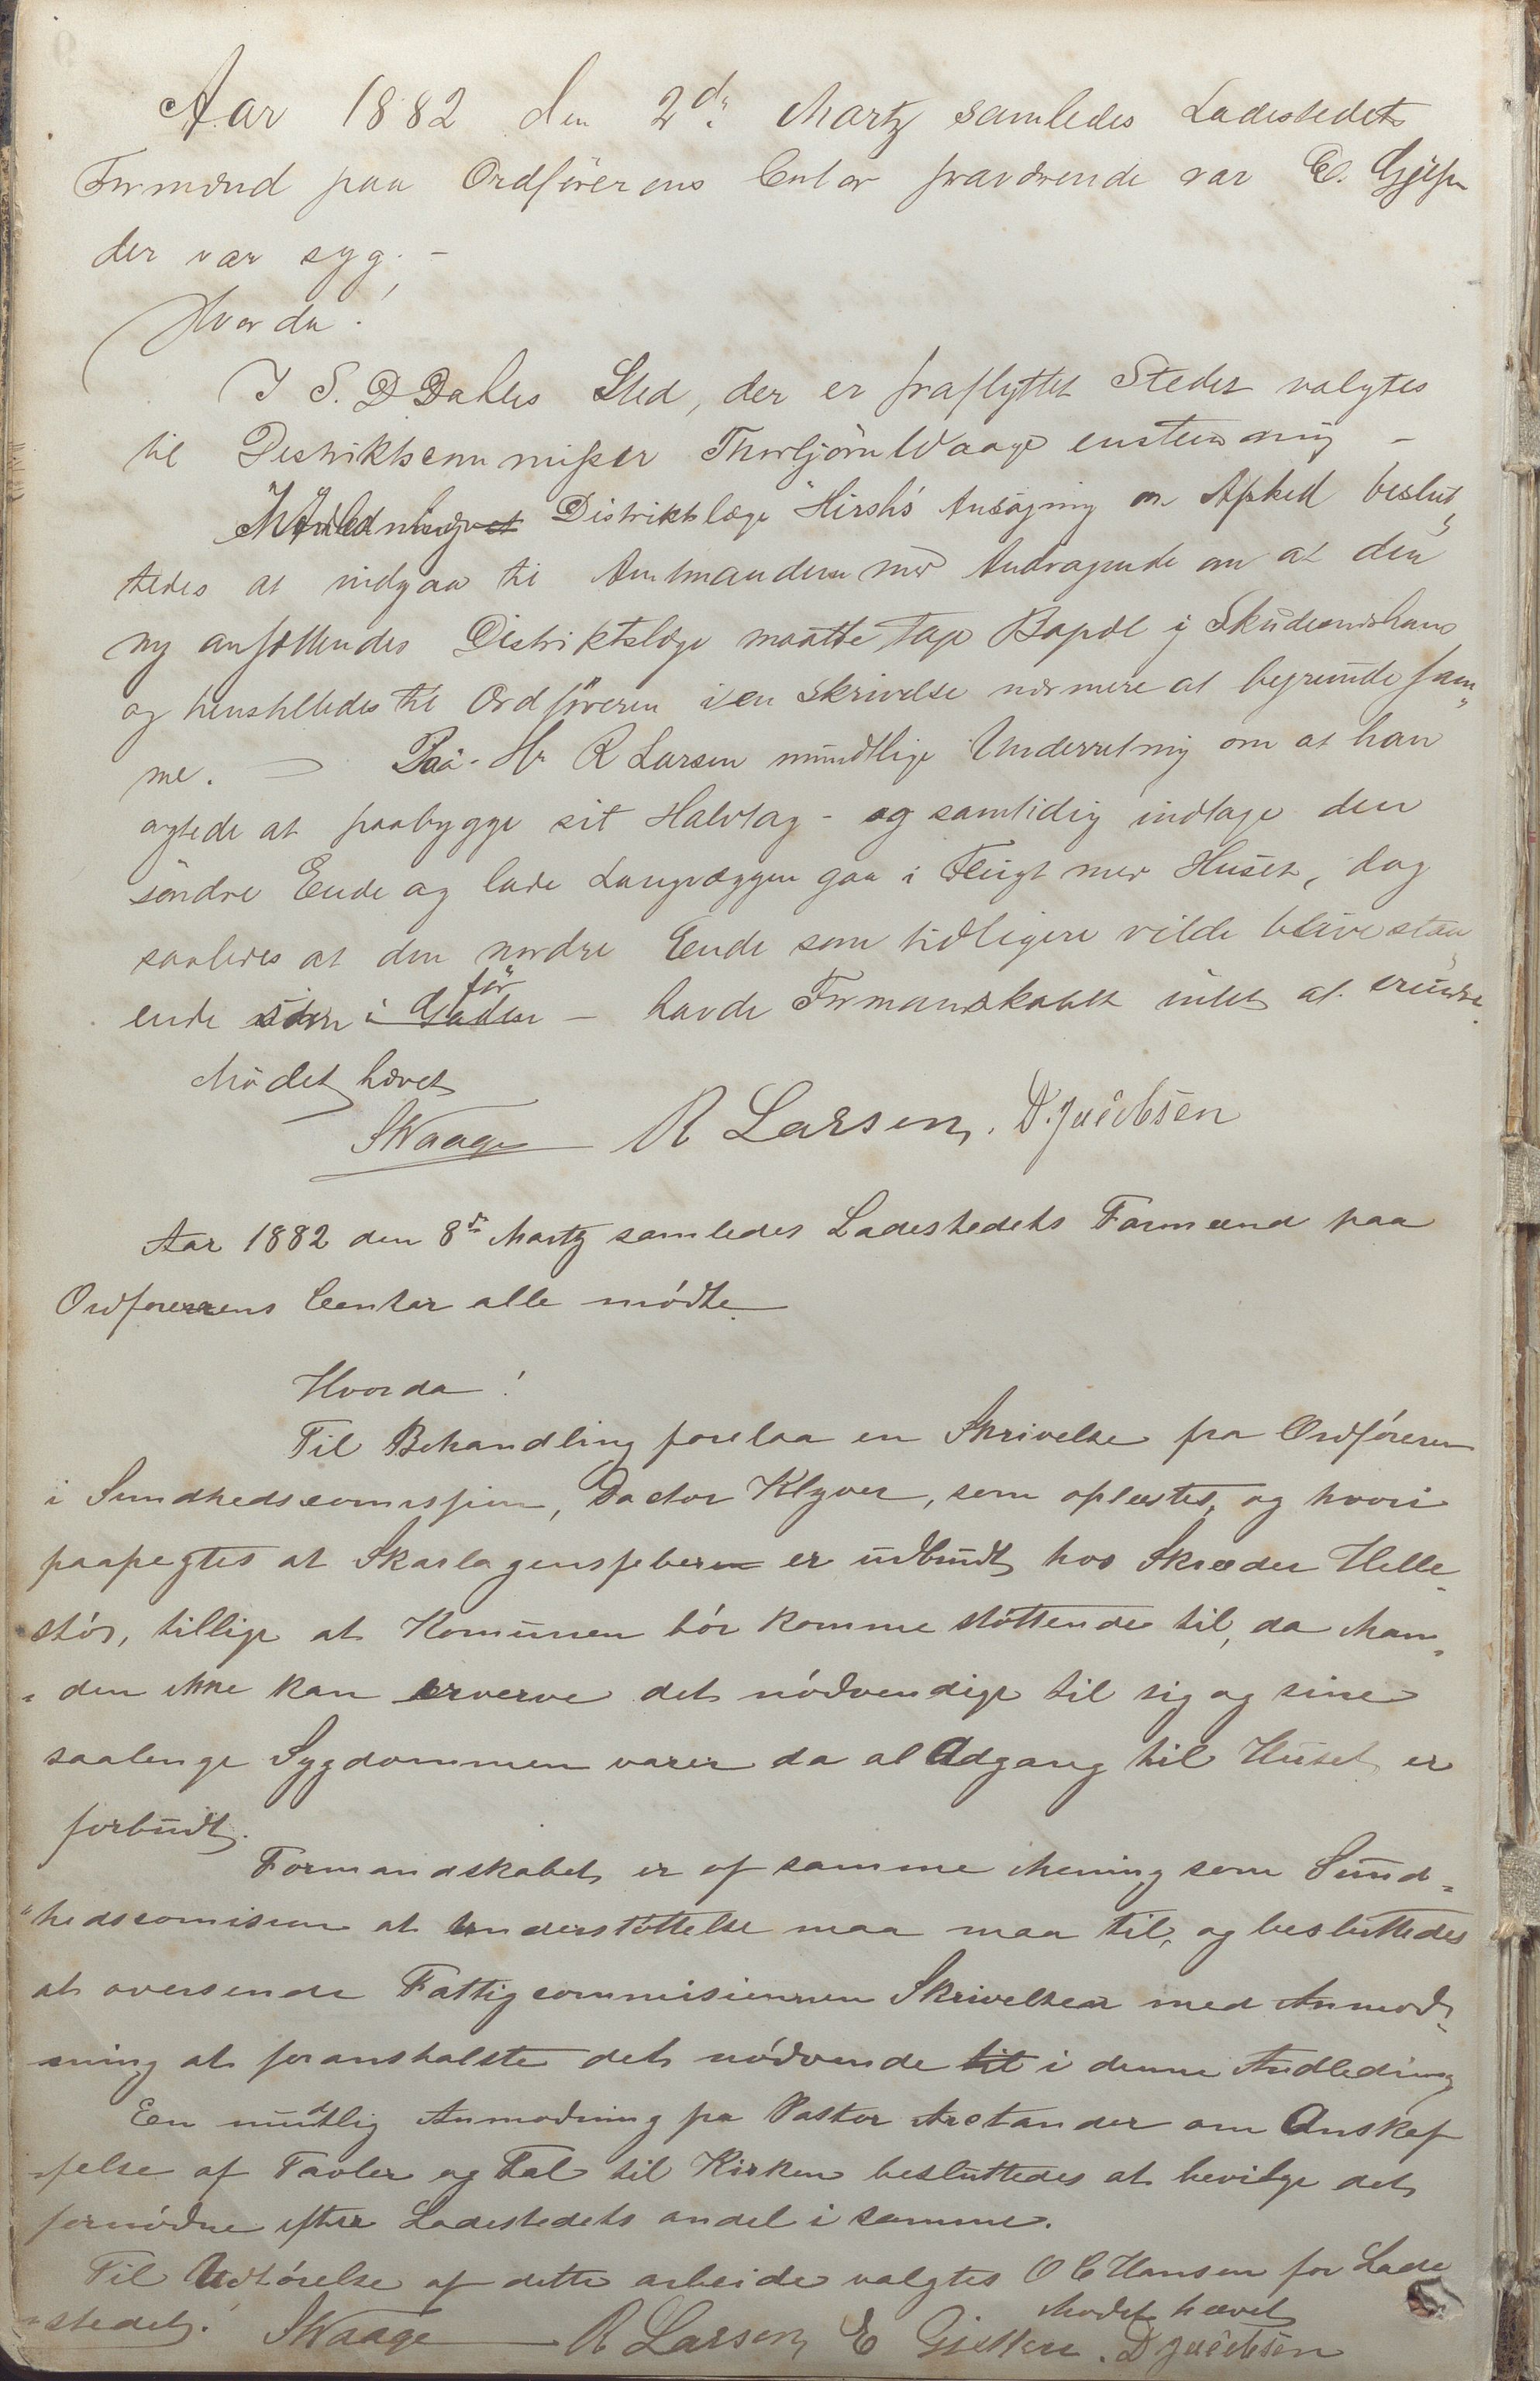 Aar 1882 den 2dn Martz samledes Ladestedets
Formænd paa Ordförerens Contor fraværende var E.
der var syg. -
Hvorda!
I S. D Dahles Sted, der er fraflyttet Stedet valgtes
til Distriktscommissær Thorbjörn Waage enstemmig -
Distriktslæge Hirsh's Ansögning om Afsked beslut„
tedes at indgaa til Amtmanden med Andragende om at den
ny ansættendes Distriktslæge maatte tage Bopæl i Skudesneshavn
og henstilledes til Ordföreren i en Skrivelse nærmere at begrunde sam„
me. - Paa Hr R Larsen mundtlige Underretning om at han
agtede at paabygge sit Halvtag - og samtidig indtage den
söndre Ende og lade Langvæggen gaa i Flugt med Huset, dog
saaledes at den nordre Ende som tidligere vilde blive staa„
ende för - havde Formandskabet intet at erindre.
Mödet hævet
SWaage R Larsen. D. Jacobsen
Aar 1882 den 8de Martz samledes Ladestedets Formænd paa
Ordförerens Contor alle mödte
Hvorda!
Til Behandling forelaa en Skrivelse fra Ordföreren
i Sundhedscomissjon, Doctor Klyver, som oplæstes, og hvori
paapegtes at Skarlagensfeber er udbrudt hos Skræder Helle-
stör, tillige at Komunen bör komme stöttende til, da Man„
„den ikke kan erverve det nödvendige til sig og sine
saalenge Sygdommen varer da al Adgang til Huset er
forbudt.
Formandskabet er af samme Mening som Sund„
„hedscomision at Understöttelse maa maa til, og besluttedes
at oversende Fattigcommisionen Skrivelsen med Anmod„
ning at foranstalte det nödvende til i denne Andledning
En mundtlig Anmodning fra Pastor Arctander om Anskaf
„felse af Tavler og Tal til Kirken besluttedes at bevilge det
fornödne efter Ladestedets andel i samme.
Til Udförelse af dette arbeide valgtes O C Hansen for Lade
„stedet. Mödet hævet
SWaage R Larsen E D Jacobsen